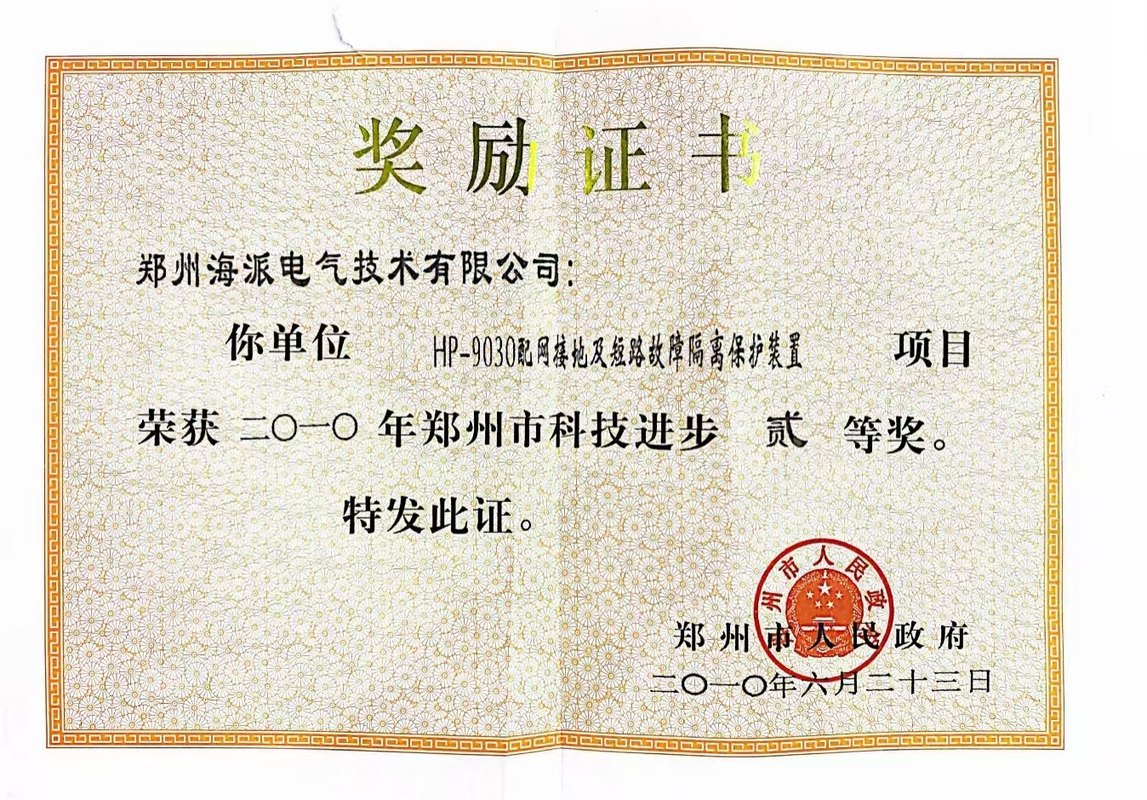 奖励证书
郑州海派电气技术有限公司:
你单位 HP-9030配网接地及短路故障隔离保护装置 项目
荣获 二〇一〇 年郑州市科技进步 贰 等奖。
特发此证。
州市人民政
郑州市人民政府
二〇一〇年六月二十三日